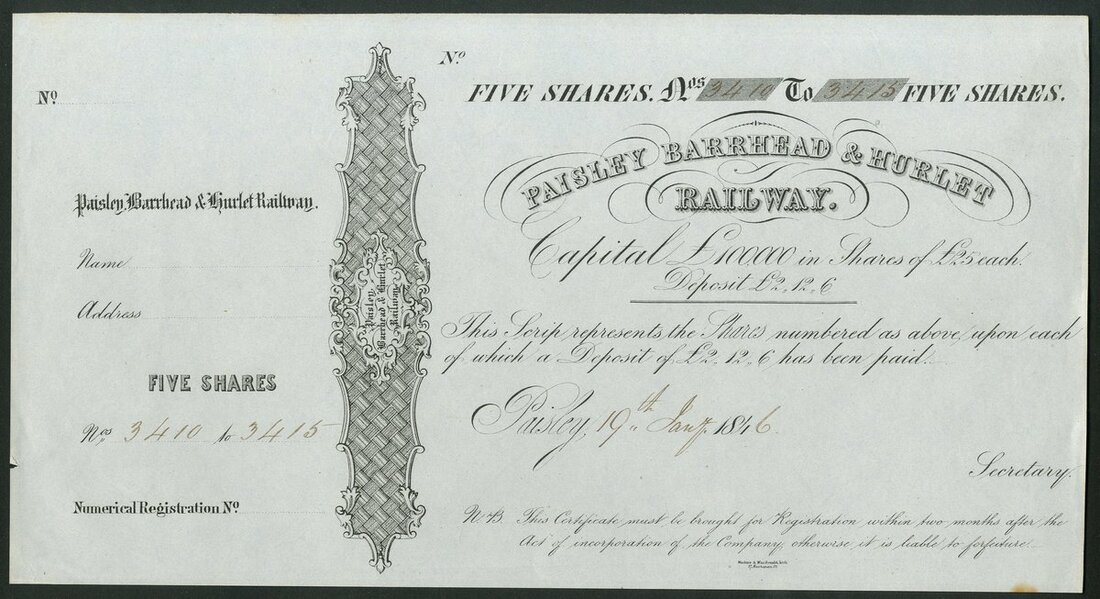 Nº
Paisley, Barrhead & Hurlet Railway.
Name
Address
FIVE SHARES
Nos 3410 to 3415
Numerical Registration Nº
Paisley
Barrhead & Hurlet
Railway
Nº
FIVE SHARES. Nos 3410 To 3415 FIVE SHARES.
PAISLEY BARRHEAD & HURLET
RAILWAY.
Capital £100,000 in Shares of £25 each.
Deposit £2,,12,,6
This Scrip represents the Shares numbered as above, upon each
of which a Deposit of £2,,12,,6 has been paid.
Paisley, 19th Jany. 1846.
Secretary.
N.B. This Certificate must be brought for Registration within two months after the
Act of incorporation of the Company, otherwise, it is liable to forfeiture.